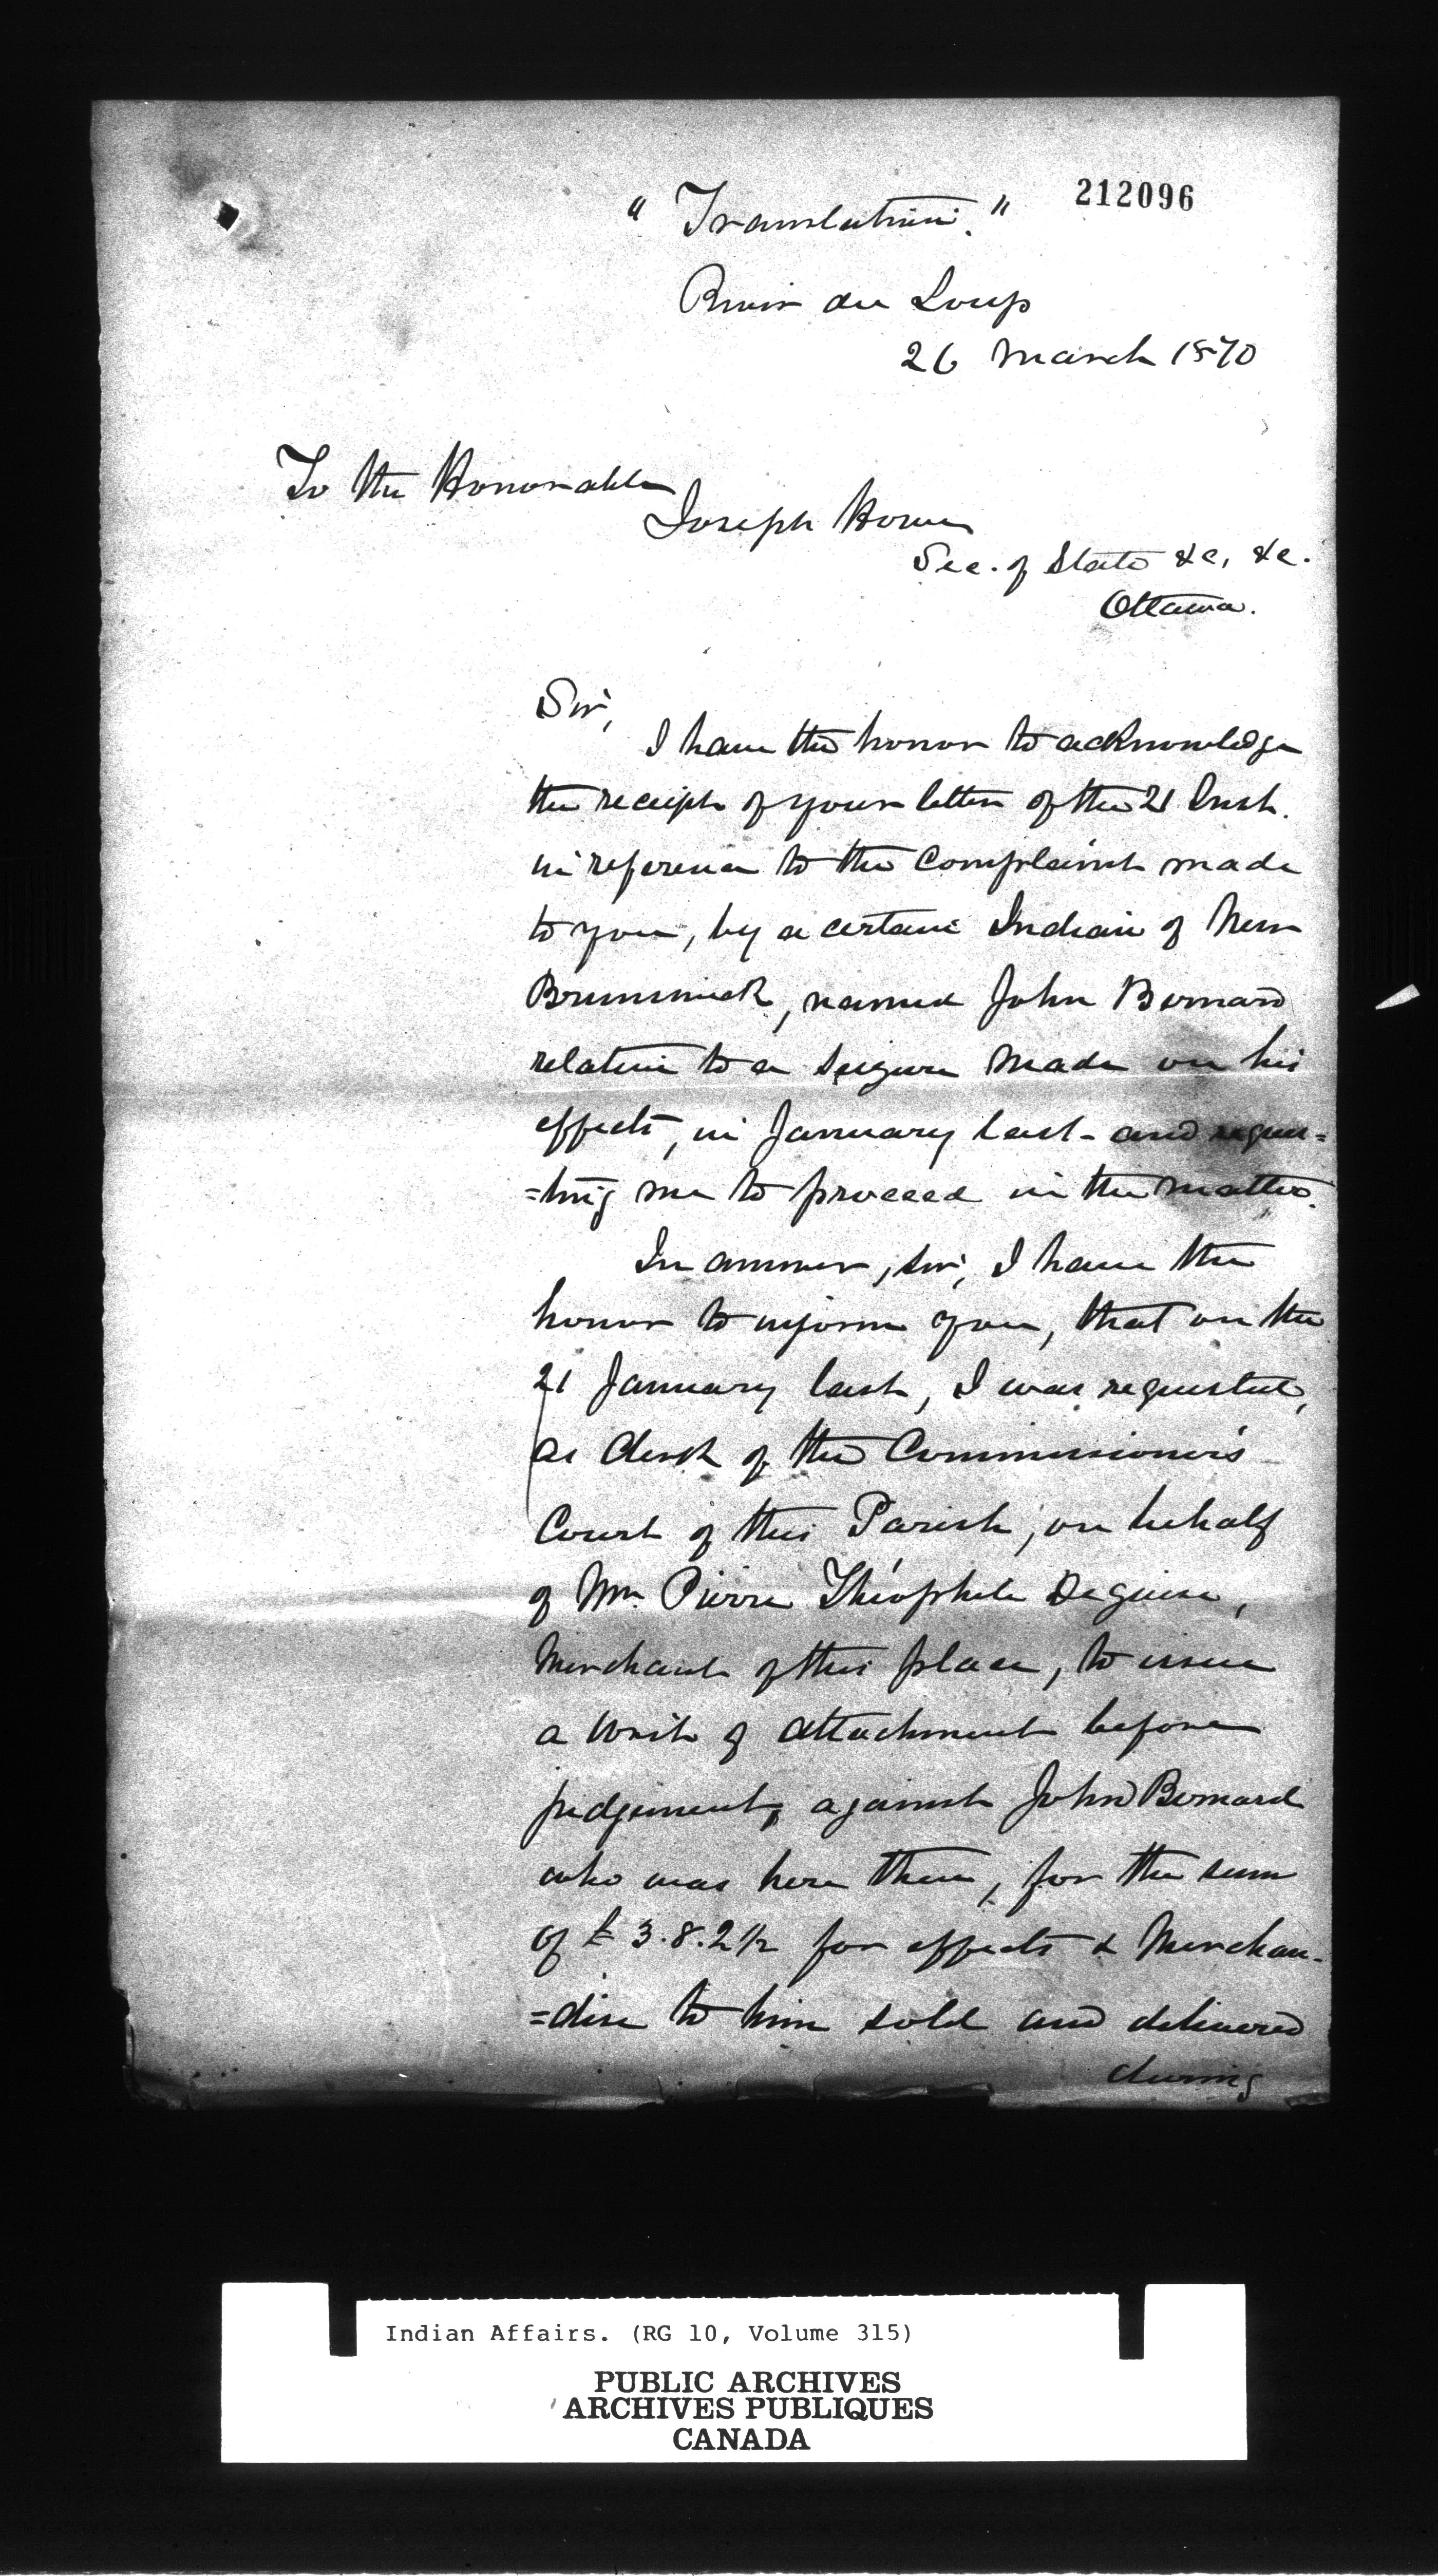 212096
"Translation."
Rivière du Loup
26 March 1870
To the Honorable
Joseph Howe
Sec. of State &c, &c.
Ottawa.
Sir,
I have the honor to acknowledge
the receipt of your letter of the 21 Inst.
in reference to the complaint made
to you, by a certain Indian of New
Brunswick, named John Bernard
relative to a seizure made on his
effects, in January last - and reques=
=ting me to proceed in the matter.
In answer, sir, I have the
honor to inform you, that on the
21 January last, I was requested,
as Clerk of the Commissioner's
Court of this Parish, on behalf
of Mr. Pierre Théophile Deguise,
Merchant of this place, to issue
a Writ of attachment before
judgement, against John Bernard
who was here then, for the sum
of £ 3.8.2 1/2 for effects & Merchan-
=dise to him sold and delivered
during
Indian Affairs. (RG 10, Volume 315)
PUBLIC ARCHIVES
ARCHIVES PUBLIQUES
CANADA